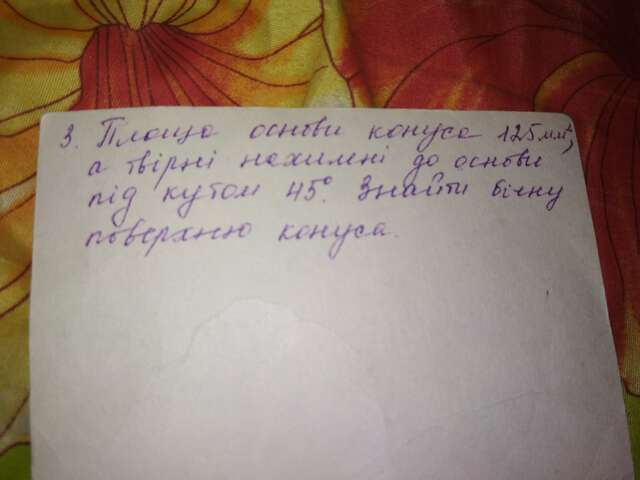 3. Площа основи конуса 125 мм²,
а твірні нахилні до основи
під кутом 45°. Знайти бічну
поверхню конуса.